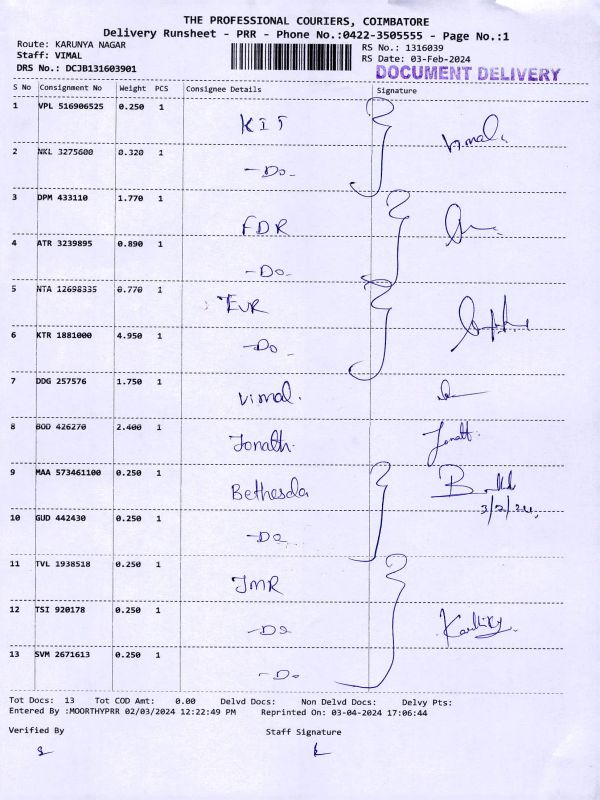 THE PROFESSIONAL COURIERS, COIMBATORE
Delivery Runsheet - PRR - Phone No.:0422-3505555 - Page No.:1
Route: KARUNYA NAGAR
Staff: VIMAL
DRS No.: DCJB131603901
RS No.: 1316039
RS Date: 03-Feb-2024
DOCUMENT DELIVERY
S No Consignment No Weight PCS Consignee Details Signature
1 VPL 516906525 0.250 1 KIT Vimal.
2 NKL 3275600 0.320 1 -Do-
3 DPM 433110 1.770 1 FDR
4 ATR 3239895 0.890 1 -Do-
5 NTA 12698335 0.770 1 EVR
6 KTR 1881000 4.950 1 -Do-
7 DDG 257576 1.750 1 Vimal.
8 BOD 426270 2.400 1 Jonath.
9 MAA 573461100 0.250 1 Bethesda
3/2/24,
10 GUD 442430 0.250 1 -Do
11 TVL 1938518 0.250 1 JMR
12 TSI 920178 0.250 1 -Do Karthik
13 SVM 2671613 0.250 1 -Do
Tot Docs: 13 Tot COD Amt: 0.00 Delvd Docs: Non Delvd Docs: Delvy Pts:
Entered By :MOORTHYPRR 02/03/2024 12:22:49 PM Reprinted On: 03-04-2024 17:06:44
Verified By Staff Signature